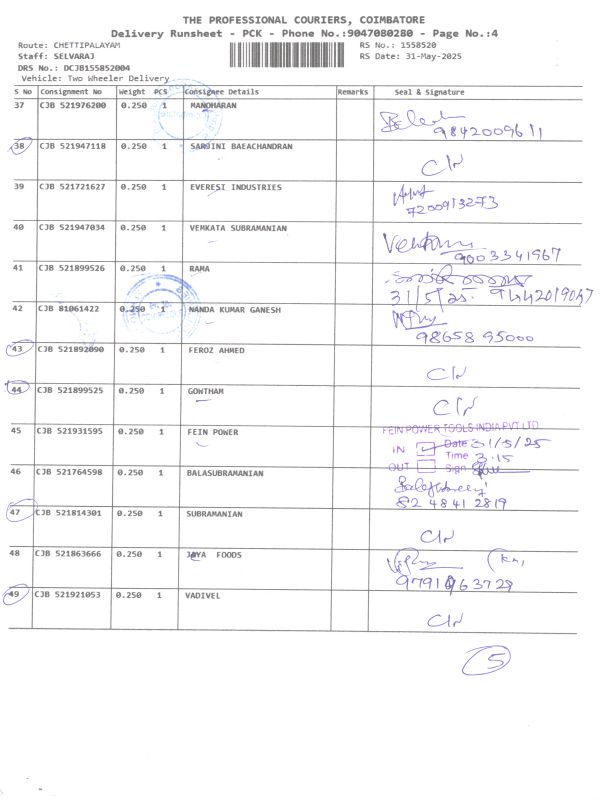 THE PROFESSIONAL COURIERS, COIMBATORE
Delivery Runsheet - PCK - Phone No.:9047080280 - Page No.:4
Route: CHETTIPALAYAM RS No.: 1558520
Staff: SELVARAJ RS Date: 31-May-2025
DRS No.: DCJB155852004
Vehicle: Two Wheeler Delivery
S No Consignment No Weight PCS Consignee Details Remarks Seal & Signature
37 CJB 521976200 0.250 1 MANOHARAN
9842009611
38 CJB 521947118 0.250 1 SAROJINI BAEACHANDRAN
C/N
39 CJB 521721627 0.250 1 EVERESI INDUSTRIES
7200913273
40 CJB 521947034 0.250 1 VEMKATA SUBRAMANIAN
9003341967
41 CJB 521899526 0.250 1 RAMA
31/5/25. 9442019047
42 CJB 81061422 0.250 1 NANDA KUMAR GANESH
98658 95000
43 CJB 521892090 0.250 1 FEROZ AHMED
C/N
44 CJB 521899525 0.250 1 GOWTHAM
C/N
45 CJB 521931595 0.250 1 FEIN POWER
FEIN POWER TOOLS INDIA PVT LTD
IN Date 31/5/25
Time 3.15
OUT Sign
46 CJB 521764598 0.250 1 BALASUBRAMANIAN
82 4841 2819
47 CJB 521814301 0.250 1 SUBRAMANIAN
C/N
48 CJB 521863666 0.250 1 JAYA FOODS
49 CJB 521921053 0.250 1 VADIVEL
C/N
5